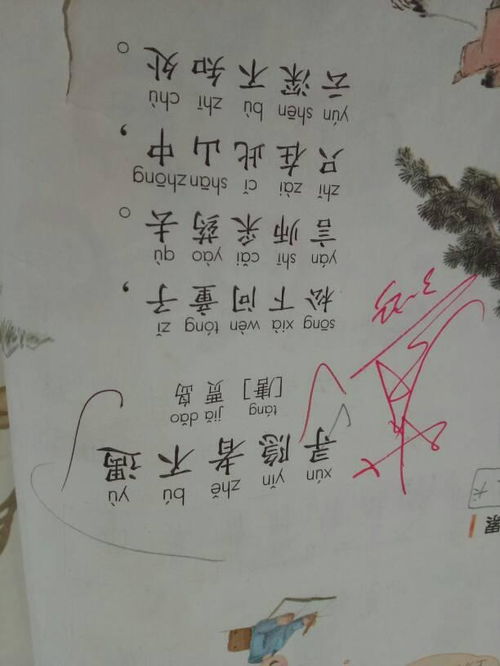 xún yǐn zhě bú yù
寻隐者不遇
táng jiǎ dǎo
[唐] 贾岛
sōng xià wèn tóng zǐ
松下问童子，
yán shī cǎi yào qù
言师采药去。
zhǐ zài cǐ shān zhōng
只在此山中，
yún shēn bù zhī chù
云深不知处。